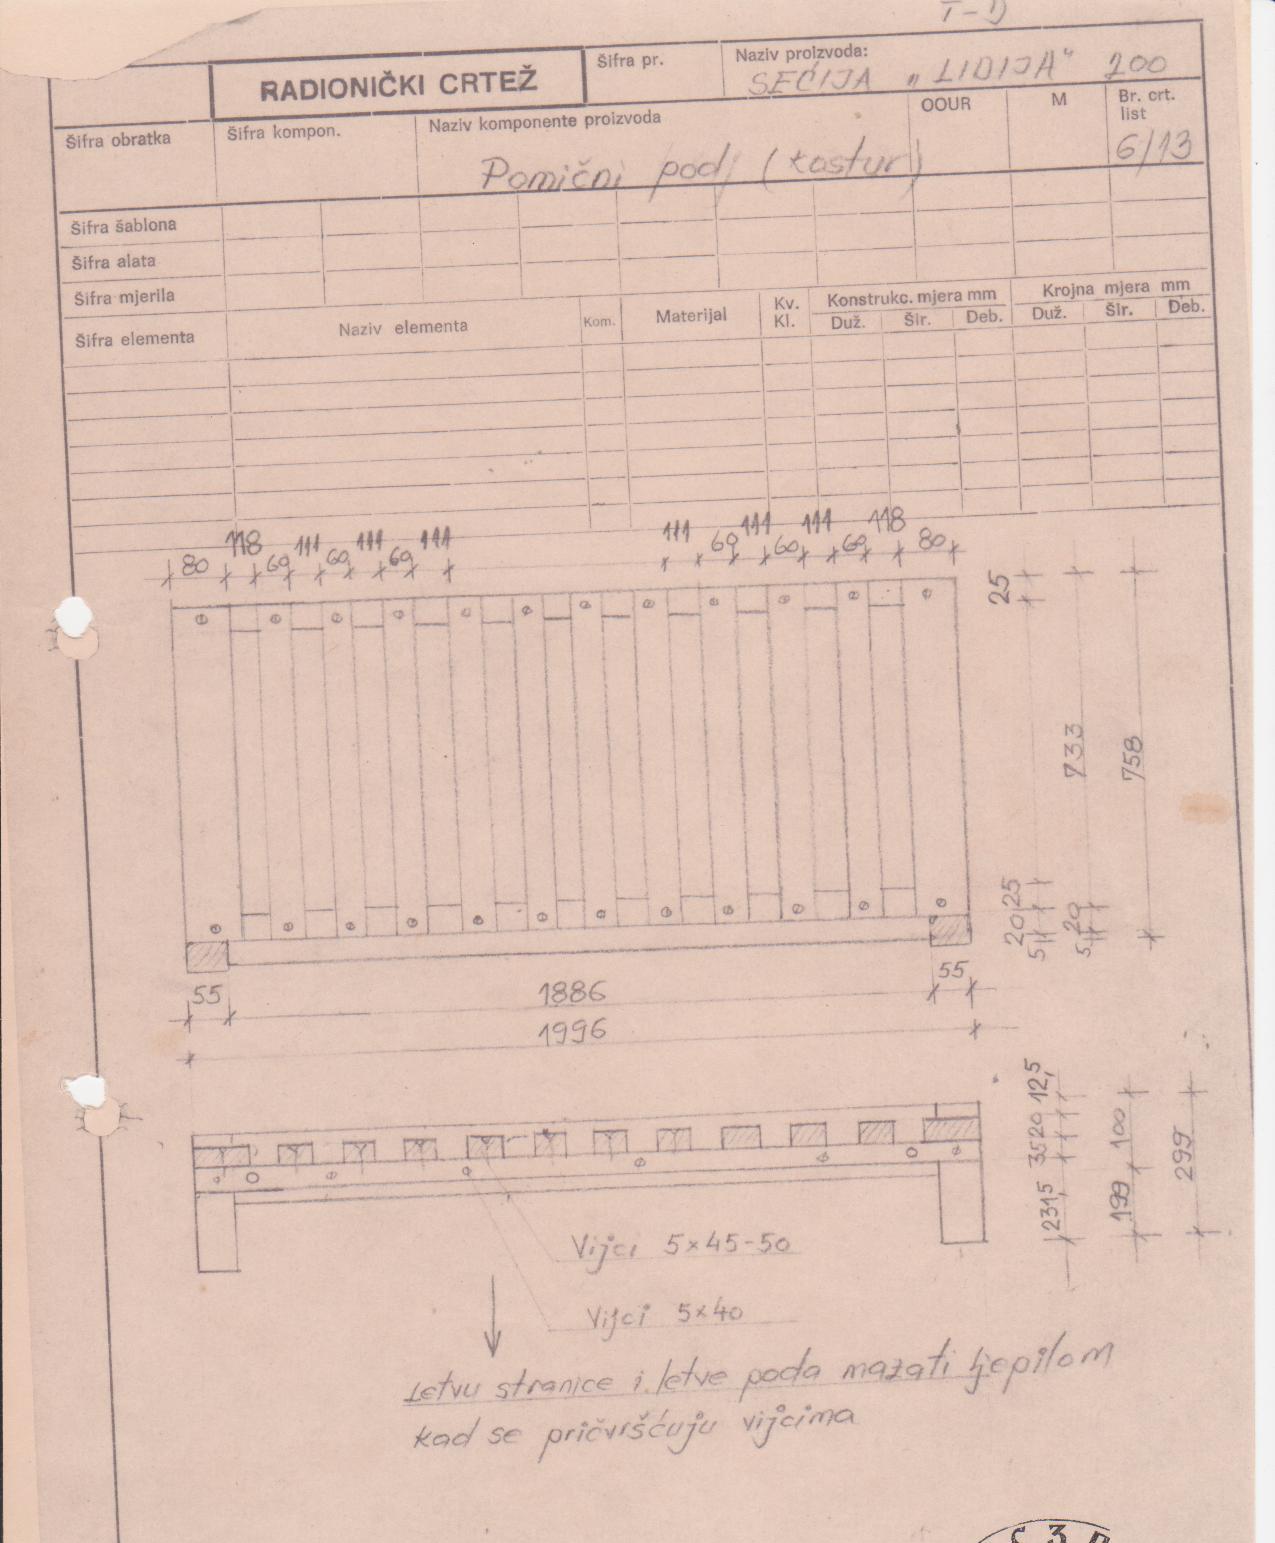 T-D
RADIONIČKI CRTEŽ
Šifra pr.
Naziv proizvoda:
SEĆIJA „LIDIJA“ 200
Šifra obratka
Šifra kompon.
Naziv komponente proizvoda
OOUR
M
Br. crt.
list
6/13
Pomični pod (kostur)
Šifra šablona
Šifra alata
Šifra mjerila
Šifra elementa
Naziv elementa
Kom.
Materijal
Kv.
Kl.
Konstrukc. mjera mm
Duž. Šir. Deb.
Krojna mjera mm
Duž. Šir. Deb.
118 111 111 111 111 111 111 118
80 60 60 60 60 60 60 80
25
733
758
25
20
5
20
5
55 1886 55
1996
12,5
20
35
231,5
100
199
299
Vijci 5x45-50
Vijci 5x40
Letvu stranice i letve poda mazati ljepilom
kad se pričvršćuju vijcima